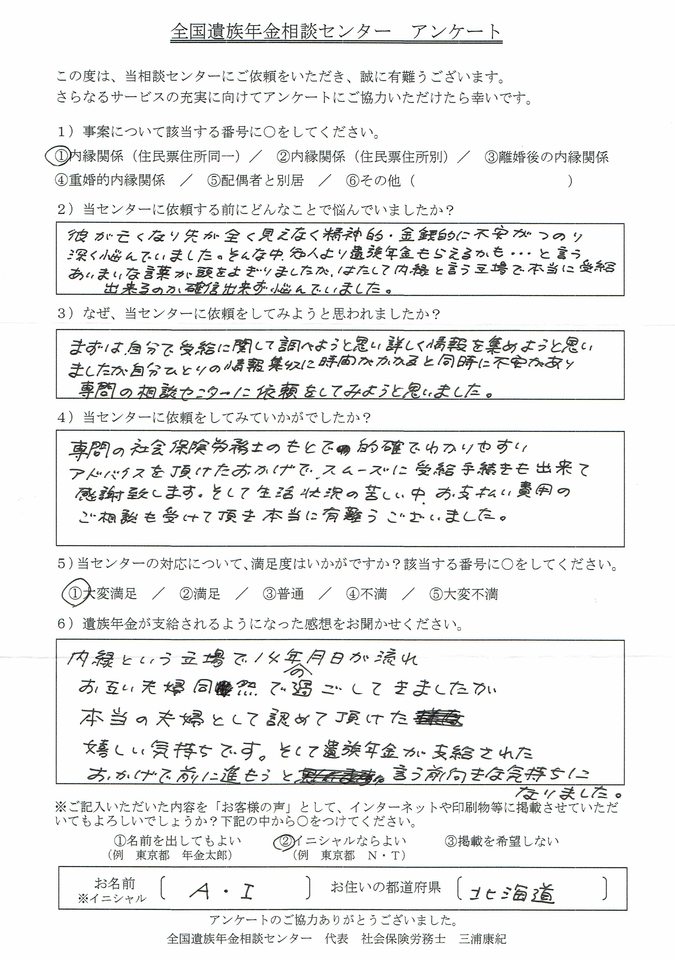 全国遺族年金相談センター　アンケート
この度は、当相談センターにご依頼をいただき、誠に有難うございます。
さらなるサービスの充実に向けてアンケートにご協力いただけたら幸いです。
1）事案について該当する番号に○をしてください。
①内縁関係（住民票住所同一）／　②内縁関係（住民票住所別）／　③離婚後の内縁関係
④重婚的内縁関係　／　⑤配偶者と別居　／　⑥その他（　　　　　　　　　　）
2）当センターに依頼する前にどんなことで悩んでいましたか？
彼が亡くなり先が全く見えなく精神的・金銭的に不安がつのり
深く悩んでいました。そんな中、知人より遺族年金もらえるかも・・・と言う
あいまいな言葉が頭をよぎりましたが、はたして内縁と言う立場で本当に受給
出来るのか確信出来ず悩んでいました。
3）なぜ、当センターに依頼をしてみようと思われましたか？
まずは自分で受給に関して調べようと思い詳しく情報を集めようと思い
ましたが自分ひとりの情報集収に時間がかかると同時に不安があり
専門の相談センターに依頼をしてみようと思いました。
4）当センターに依頼をしてみていかがでしたか？
専門の社会保険労務士のもとで的確でわかりやすい
アドバイスを頂けたおかげで、スムーズに受給手続きも出来て
感謝致します。そして生活状況の苦しい中、お支払い費用の
ご相談も受けて頂き本当に有難うございました。
5）当センターの対応について、満足度はいかがですか？該当する番号に○をしてください。
①大変満足　／　②満足　／　③普通　／　④不満　／　⑤大変不満
6）遺族年金が支給されるようになった感想をお聞かせください。
内縁という立場で14年の月日が流れ
お互い夫婦同然で過ごしてきましたが
本当の夫婦として認めて頂けた
嬉しい気持ちです。そして遺族年金が支給された
おかげで前に進もうと言う前向きな気持ちに
なりました。
※ご記入いただいた内容を「お客様の声」として、インターネットや印刷物等に掲載させていただ
いてもよろしいでしょうか？下記の中から○をつけてください。
①名前を出してもよい　②イニシャルならよい　③掲載を希望しない
（例　東京都　年金太郎）　（例　東京都　N・T）
お名前　〔　A・I　〕　お住いの都道府県　〔　北海道　〕
※イニシャル
アンケートのご協力ありがとうございました。
全国遺族年金相談センター　代表　社会保険労務士　三浦康紀